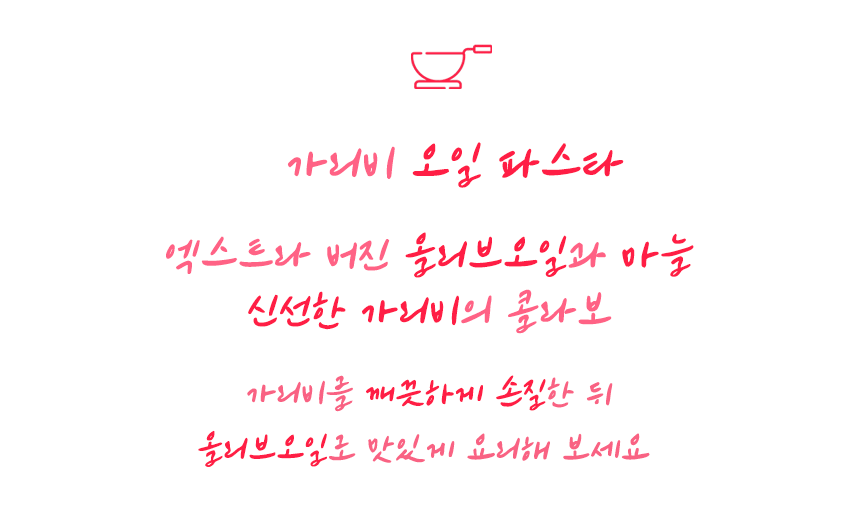 가리비 오일 파스타
엑스트라 버진 올리브오일과 마늘
신선한 가리비의 콜라보
가리비를 깨끗하게 손질한 뒤
올리브오일로 맛있게 요리해 보세요